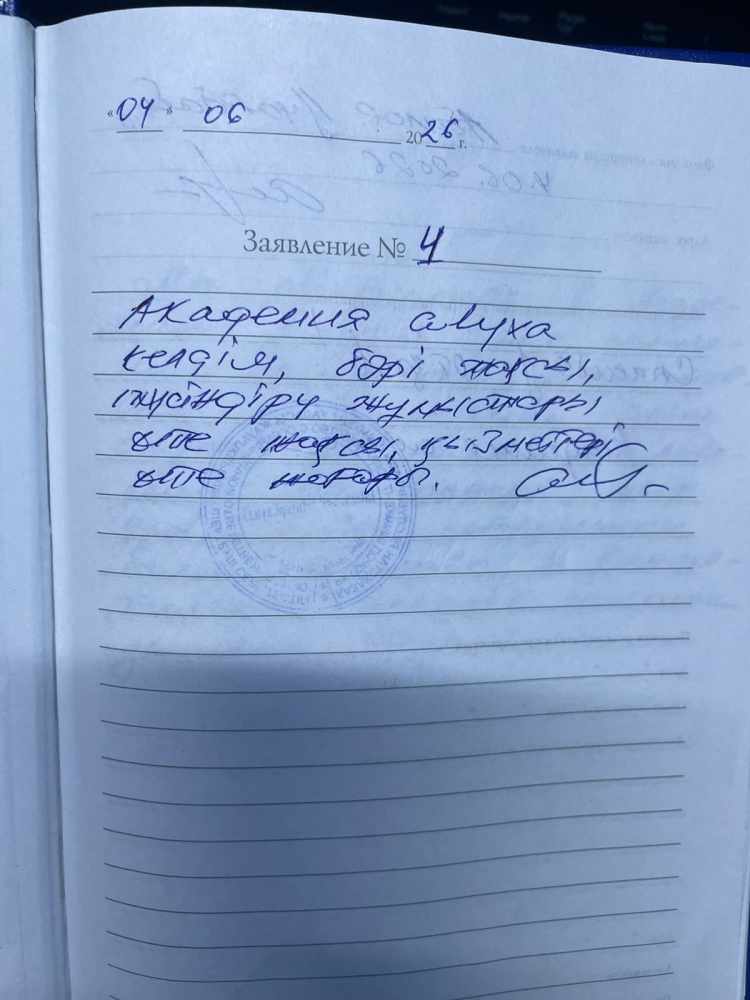 «04» 06 2026 г.
Заявление № 4
Академия слуха
келдім, бәрі жақсы,
түсіндіру жұмыстары
өте жақсы, қызметтері
өте жоғары.